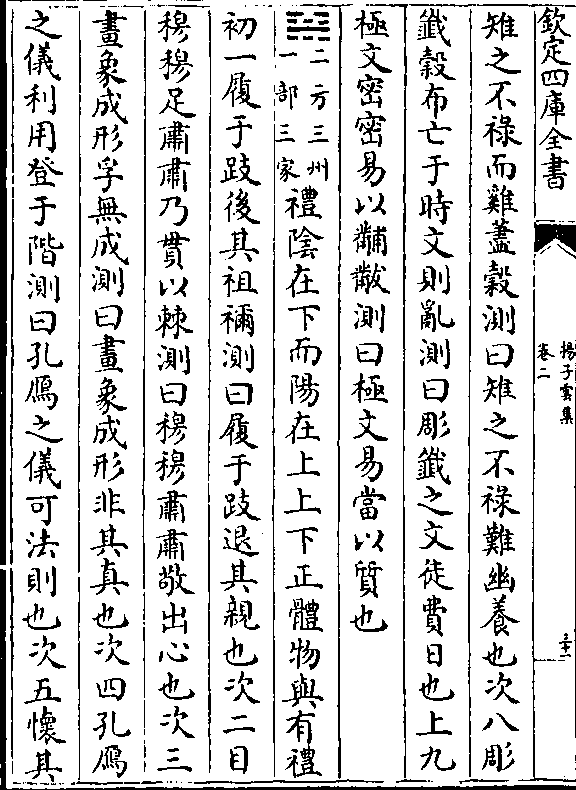 欽定四庫全書
揚子雲集
卷二
三十二
雉之不祿而雞藎穀測曰雉之不祿難幽養也次八彫
鐵穀布亡于時文則亂測曰彫鐵之文徒費日也上九
極文密密易以黼黻測曰極文易當以質也
二方三州
一部三家
禮陰在下而陽在上上下正體物與有禮
初一履于跂後其祖禰測曰履于跂退其親也次二目
穆穆足肅肅乃貫以棘測曰穆穆肅肅敬出心也次三
畫象成形孚無成測曰畫象成形非其真也次四孔鴈
之儀利用登于階測曰孔鴈之儀可法則也次五懷其